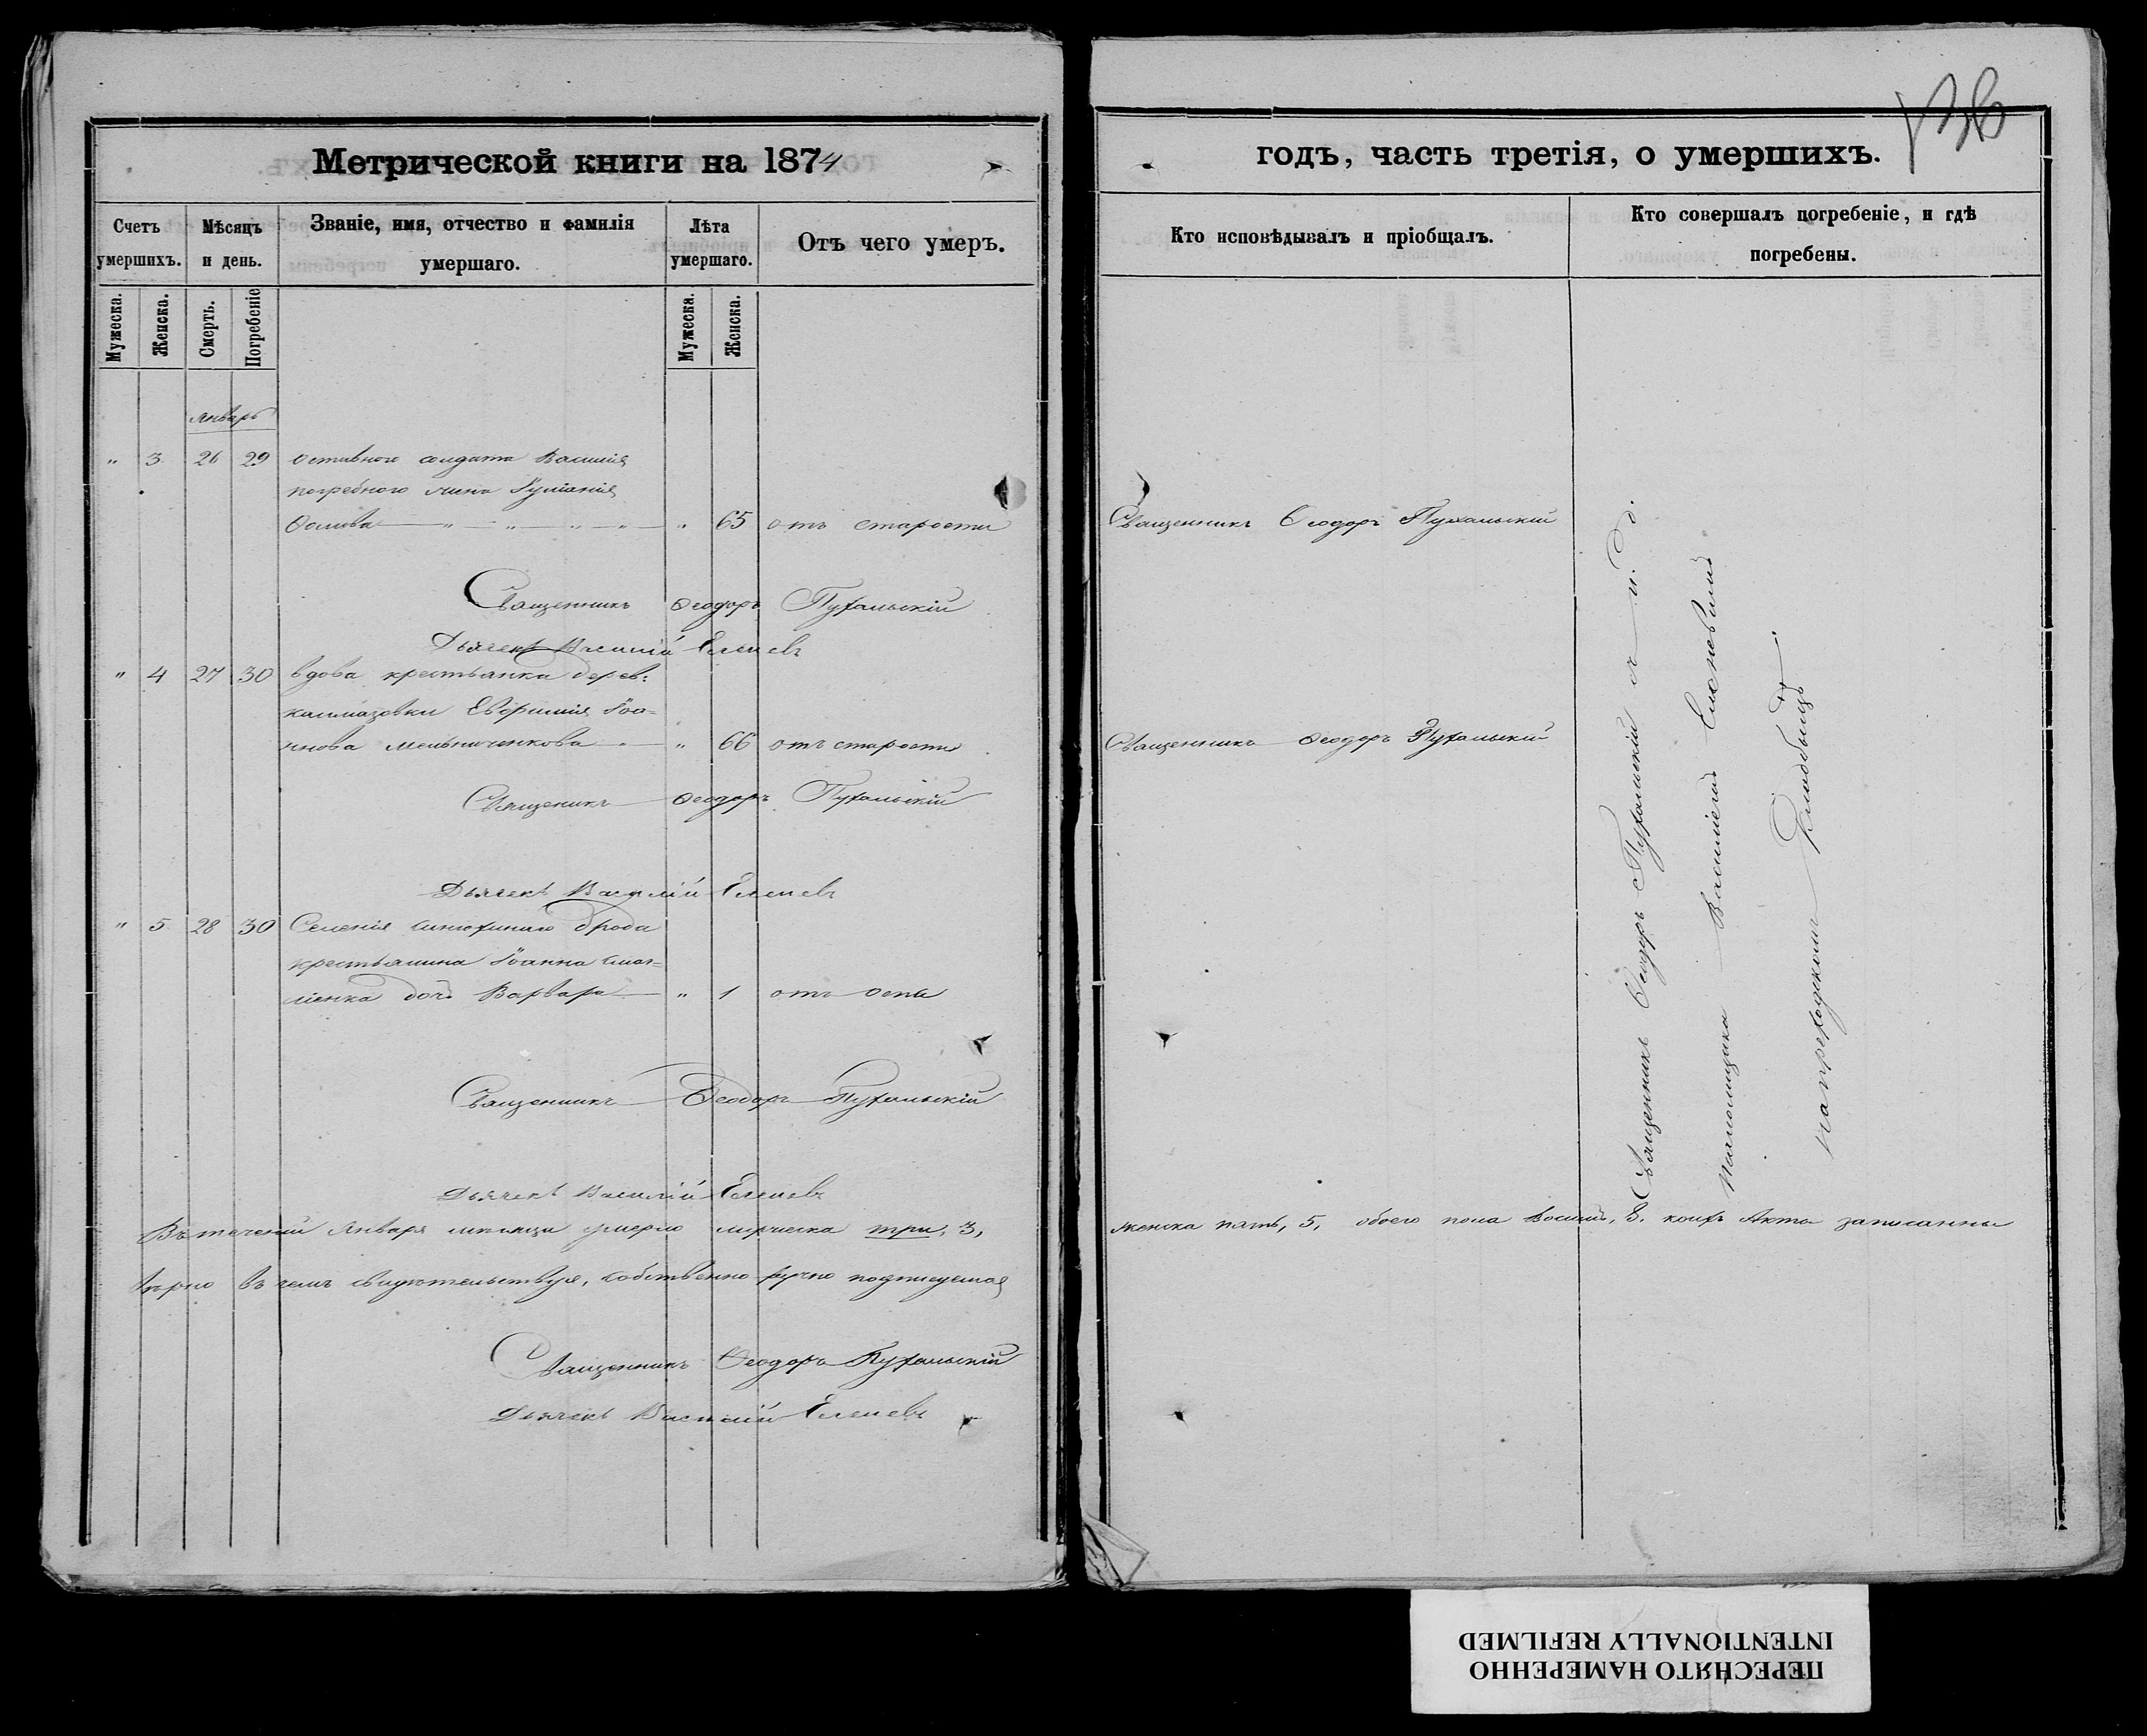 136
Метрической книги на 1874
годъ, часть третія, о умершихъ.
Счетъ умершихъ.
Мѣсяцъ и день.
Званіе, имя, отчество и фамилія умершаго.
Лѣта умершаго.
Отъ чего умеръ.
Кто исповѣдывалъ и пріобщалъ.
Кто совершалъ погребеніе, и гдѣ погребены.
Мужеска.
Женска.
Смерть.
Погребеніе
Мужеска.
Женска.
Январь
" 3 26 29 солдата Василія
жена Іуліанія
" 65 отъ старости
Священникъ Ѳеодоръ Пухальскій
Священникъ Ѳеодоръ Пухальскій
Дьячекъ Василій
" 4 27 30 вдова крестьянка дерев:
Евфимія Іоа=
ннова Мельниченкова " 66 отъ старости
Священникъ Ѳеодоръ Пухальскій
Священикъ Ѳеодоръ Пухальскій
Дьячекъ Василій
" 5 28 30 Селенія Синюхиного Брода
крестьянина Іоанна
дочь Варвара " 1 отъ оспы
Священникъ Ѳеодоръ Пухальскій
Дьячекъ Василій
Въ теченіи Января мѣсяца умерло мужеска три, 3,
женска пять, 5, обоего пола восемь, 8. коихъ Акты записанны
вѣрно въ чемъ свидѣтельствуя, собственно ручно подписуемся
Священникъ Ѳеодоръ Пухальскій
Дьячекъ Василій
Священникъ Ѳеодоръ Пухальскій съ п. д.
Василіемъ
на приходскомъ кладбищѣ.
ПЕРЕСНЯТО НАМЕРЕННО
INTENTIONALLY REFILMED